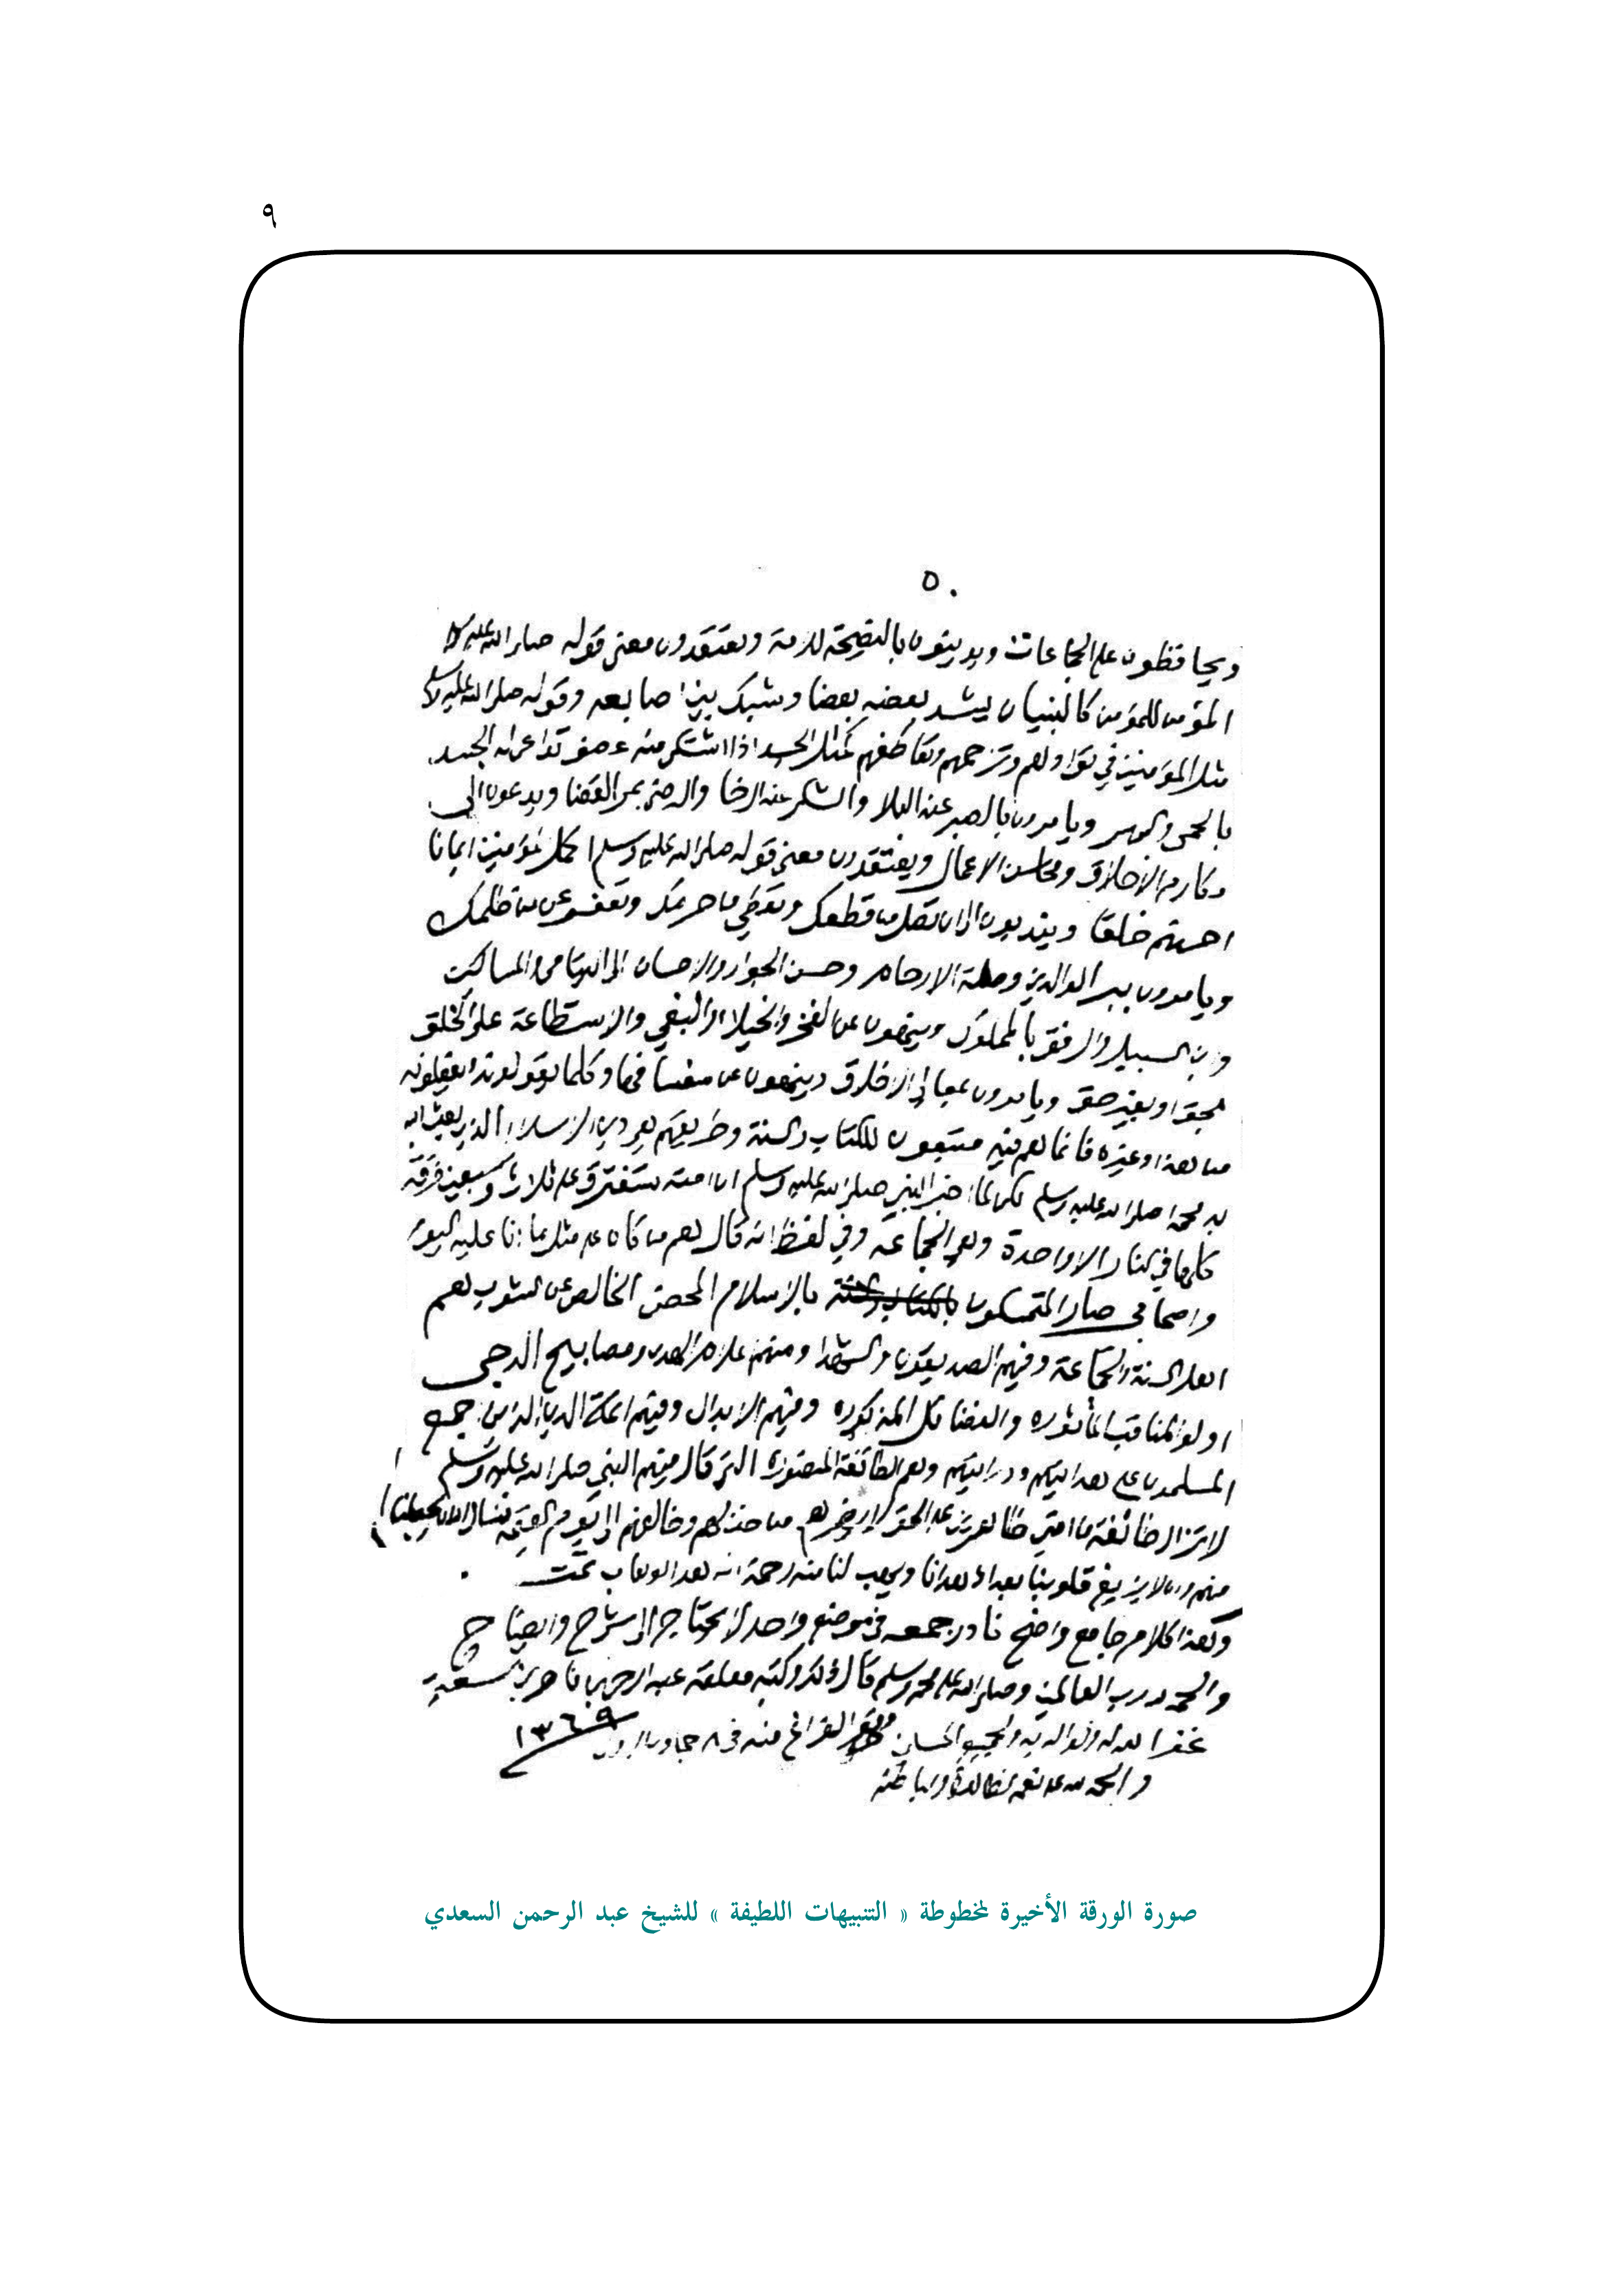 ٩
٥٠
ويحافظون على الجماعات ويدينون بالنصيحة للامة ويعتقدون معنى قوله صلى الله عليه وسلم
المؤمن للمؤمن كالبنيان يشد بعضه بعضا وشبك بين اصابعه وقوله صلى الله عليه وسلم
مثل المؤمنين في توادهم وتراحمهم وتعاطفهم كمثل الجسد اذا اشتكى منه عضو تداعى له الجسد
بالحمى والسهر ويامرون بالصبر عند البلا والشكر عند الرخا والرضى بمر القضا ويدعون الى
مكارم الاخلاق ومحاسن الاعمال ويعتقدون معنى قوله صلى الله عليه وسلم اكمل المؤمنين ايمانا
احسنهم خلقا ويندبون الى ان تصل من قطعك وتعطي من حرمك وتعفو عن من ظلمك
ويامرون ببر الوالدين وصلة الارحام وحسن الجوار والاحسان الى اليتامى والمساكين
وابن السبيل والرفق بالمملوك وينهون عن الفخر والخيلا والبغي والاستطاعة على الخلق
بحق او بغير حق ويامرون بمعالي الاخلاق وينهون عن سفسافها وكلما يقولونه او يفعلونه
من هذا وغيره فانما هم فيه متبعون للكتاب والسنة وطريقهم هو دين الاسلام الذي بعث الله
به محمدا صلى الله عليه وسلم لكن لما اخبر النبي صلى الله عليه وسلم ان امته ستفترق على ثلاث وسبعين فرقة
كلها في النار الا واحدة وهي الجماعة وفي لفظ انه قال هم من كان على مثل ما انا عليه اليوم
واصحابي صار المتمسكون بالاسلام المحض الخالص عن الشوب هم
اهل السنة والجماعة وفيهم الصديقون والشهدا ومنهم اعلام الهدى ومصابيح الدجى
اولو المناقب الماثورة والفضائل المذكورة وفيهم الابدال وفيهم ائمة الدين الذين اجمع
المسلمون على هدايتهم ودرايتهم وهم الطائفة المنصورة التي قال فيهم النبي صلى الله عليه وسلم
لا تزال طائفة من امتي ظاهرين على الحق لا يضرهم من خذلهم وخالفهم الى يوم القيمة فنسال الله ان يجعلنا
منهم وان لا يزيغ قلوبنا بعد اذ هدانا ويهب لنا منه رحمة انه هو الوهاب تمت
وهذا كلام جامع واضح نادر جمعه في موضع واحد لا يحتاج الى شرح وايضاح
والحمد لله رب العالمين وصلى الله على محمد وسلم قال ذلك وكتبه معلقه عبد الرحمن بن ناصر بن سعدي
غفر الله له ولوالديه ولجميع المسلمين ووقع الفراغ منه في ٨ جمادى الاول ١٣٦٩
والحمد لله على نعمه الظاهرة والباطنة
صورة الورقة الأخيرة لمخطوطة « التنبيهات اللطيفة » للشيخ عبد الرحمن السعدي